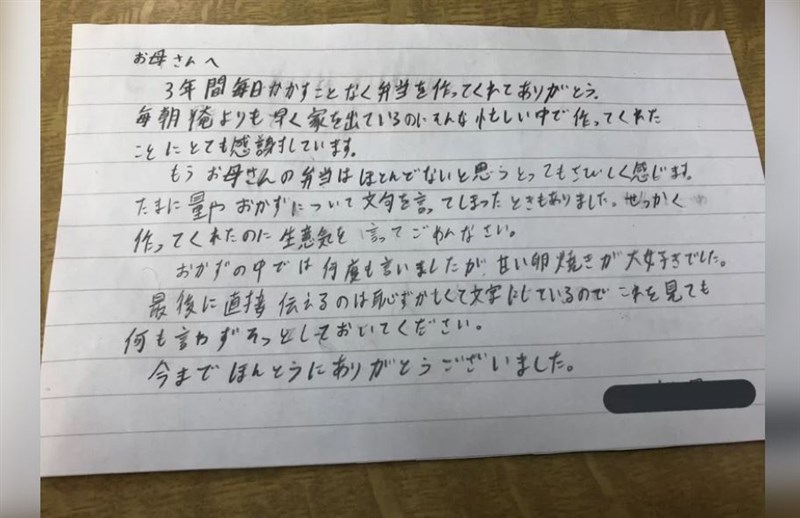 お母さんへ
3年間毎日かかすことなく弁当を作ってくれてありがとう。
毎朝俺よりも早く家を出ているのにそんな忙しい中で作ってくれた
ことにとても感謝しています。
もうお母さんの弁当はほとんどないと思うとってもさびしく感じます。
たまに量やおかずについて文句を言ってしまったときもありました。せっかく
作ってくれたのに生意気を言ってごめんなさい。
おかずの中では何度も言いましたが、甘い卵焼きが大好きでした。
最後に直接伝えるのは恥ずかしくて文字にしているのでこれを見ても
何も言わずそっとしておいてください。
今までほんとうにありがとうございました。